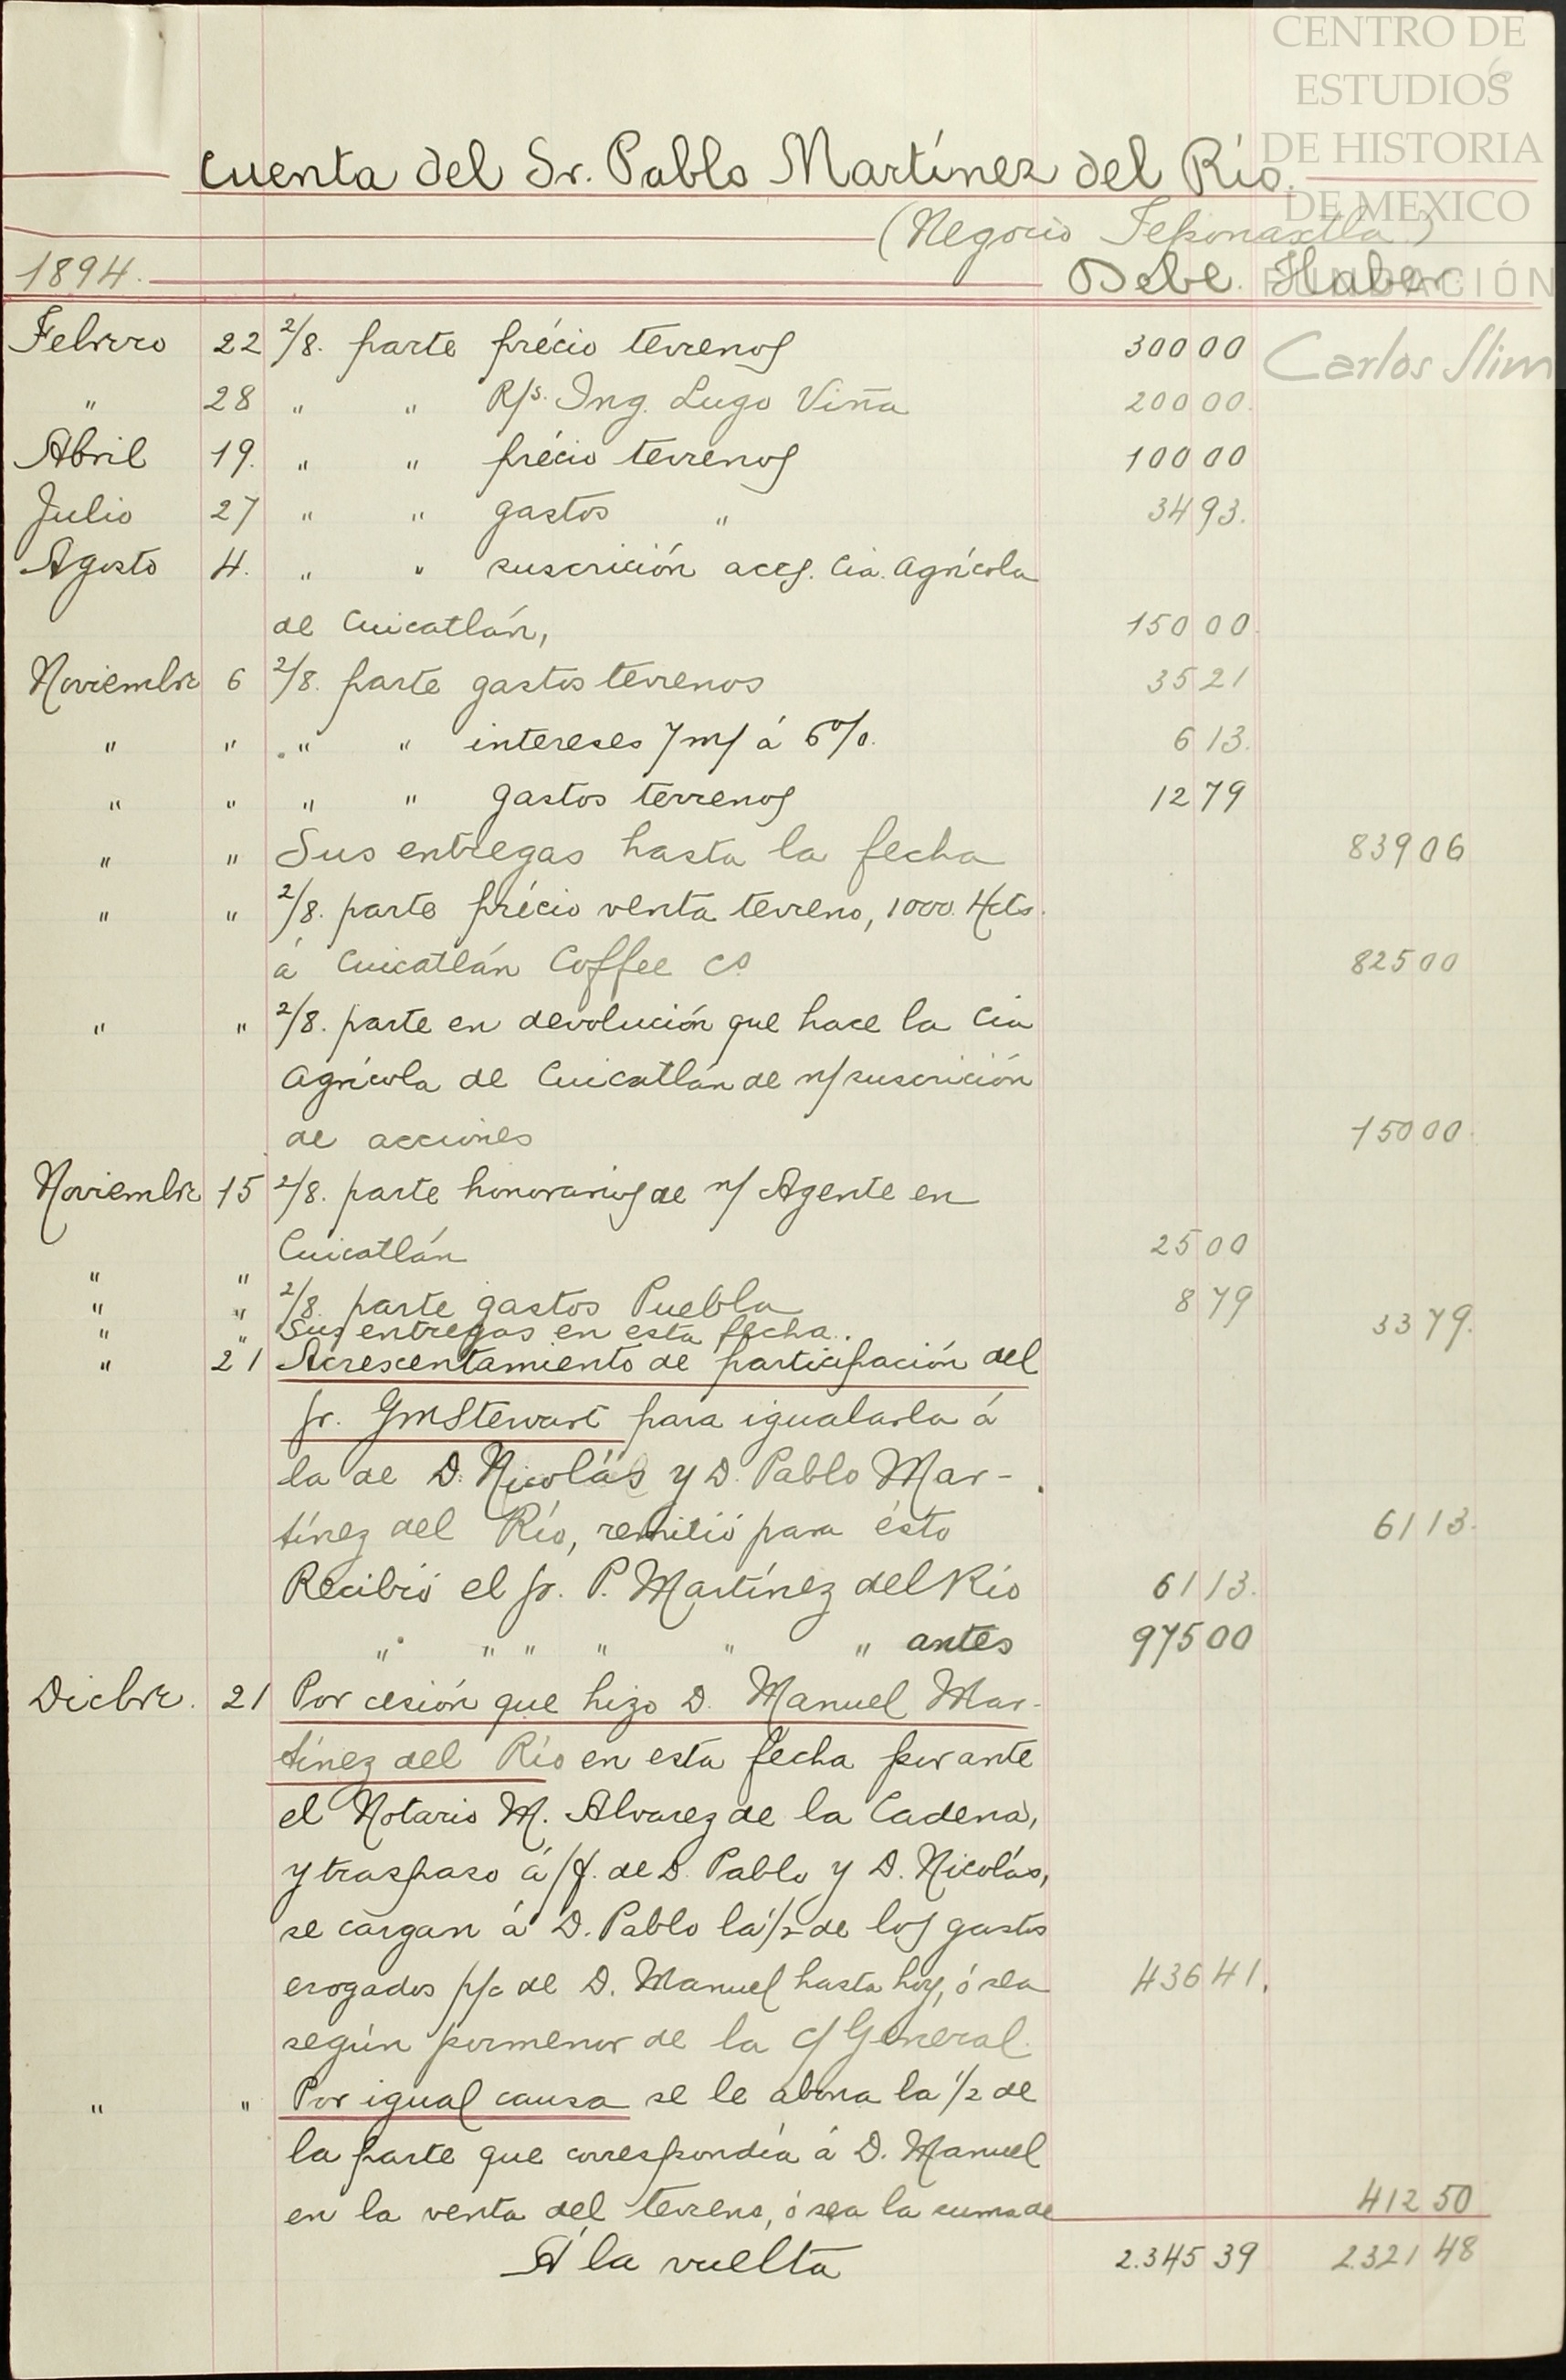 CENTRO DE
ESTUDIOS
DE HISTORIA
DE MEXICO
FUNDACIÓN
Carlos Slim
Cuenta del Sr. Pablo Martínez del Río.
(Negocio Teponaxtla)
1894. Debe. Haber.
Febrero 22 2/8. parte précio terrenos 300 00
" 28 " " R/s. Ing. Lugo Viña 200 00.
Abril 19. " " précio terrenos 100 00
Julio 27 " " gastos " 34 93.
Agosto 4. " " suscrición accs. Cia. Agrícola
de Cuicatlán, 150 00.
Noviembre 6 2/8. parte gastos terrenos 35 21
" " " " intereses 7 m/ á 6%. 6 13.
" " " " gastos terrenos 12 79
" " Sus entregas hasta la fecha 839 06
" " 2/8. parte précio venta terreno, 1000. Hcts.
á Cuicatlán Coffee Co 825 00
" " 2/8. parte en devolución que hace la Cia
Agrícola de Cuicatlán de n/ suscrición
de acciones 150 00.
Noviembre 15 2/8. parte honorarios de n/ Agente en
Cuicatlán 25 00
" " 2/8. parte gastos Puebla 8 79
" " Sus entregas en esta fecha. 33 79.
" 21 Acrescentamiento de participación del
Sr. GMStewart para igualarla á
la de D. Nicolás y D. Pablo Mar-
tínez del Río, remitió para ésto 61 13.
Recibió el Sr. P. Martínez del Rio 61 13.
" " " " " " antes 975 00
Dicbre. 21 Por cesión que hizo D. Manuel Mar-
tínez del Río en esta fecha por ante
el Notario M. Alvarez de la Cadena,
y traspaso á /f. de D. Pablo y D. Nicolás,
se cargan á D. Pablo la 1/2 de los gastos
erogados p/c de D. Manuel hasta hoy, ó sea 436 41.
según pormenor de la c/ General.
" " Por igual causa se le abona la 1/2 de
la parte que correspondía á D. Manuel
en la venta del terreno, ó sea la suma de 412 50
A la vuelta 2.345 39 2.321 48